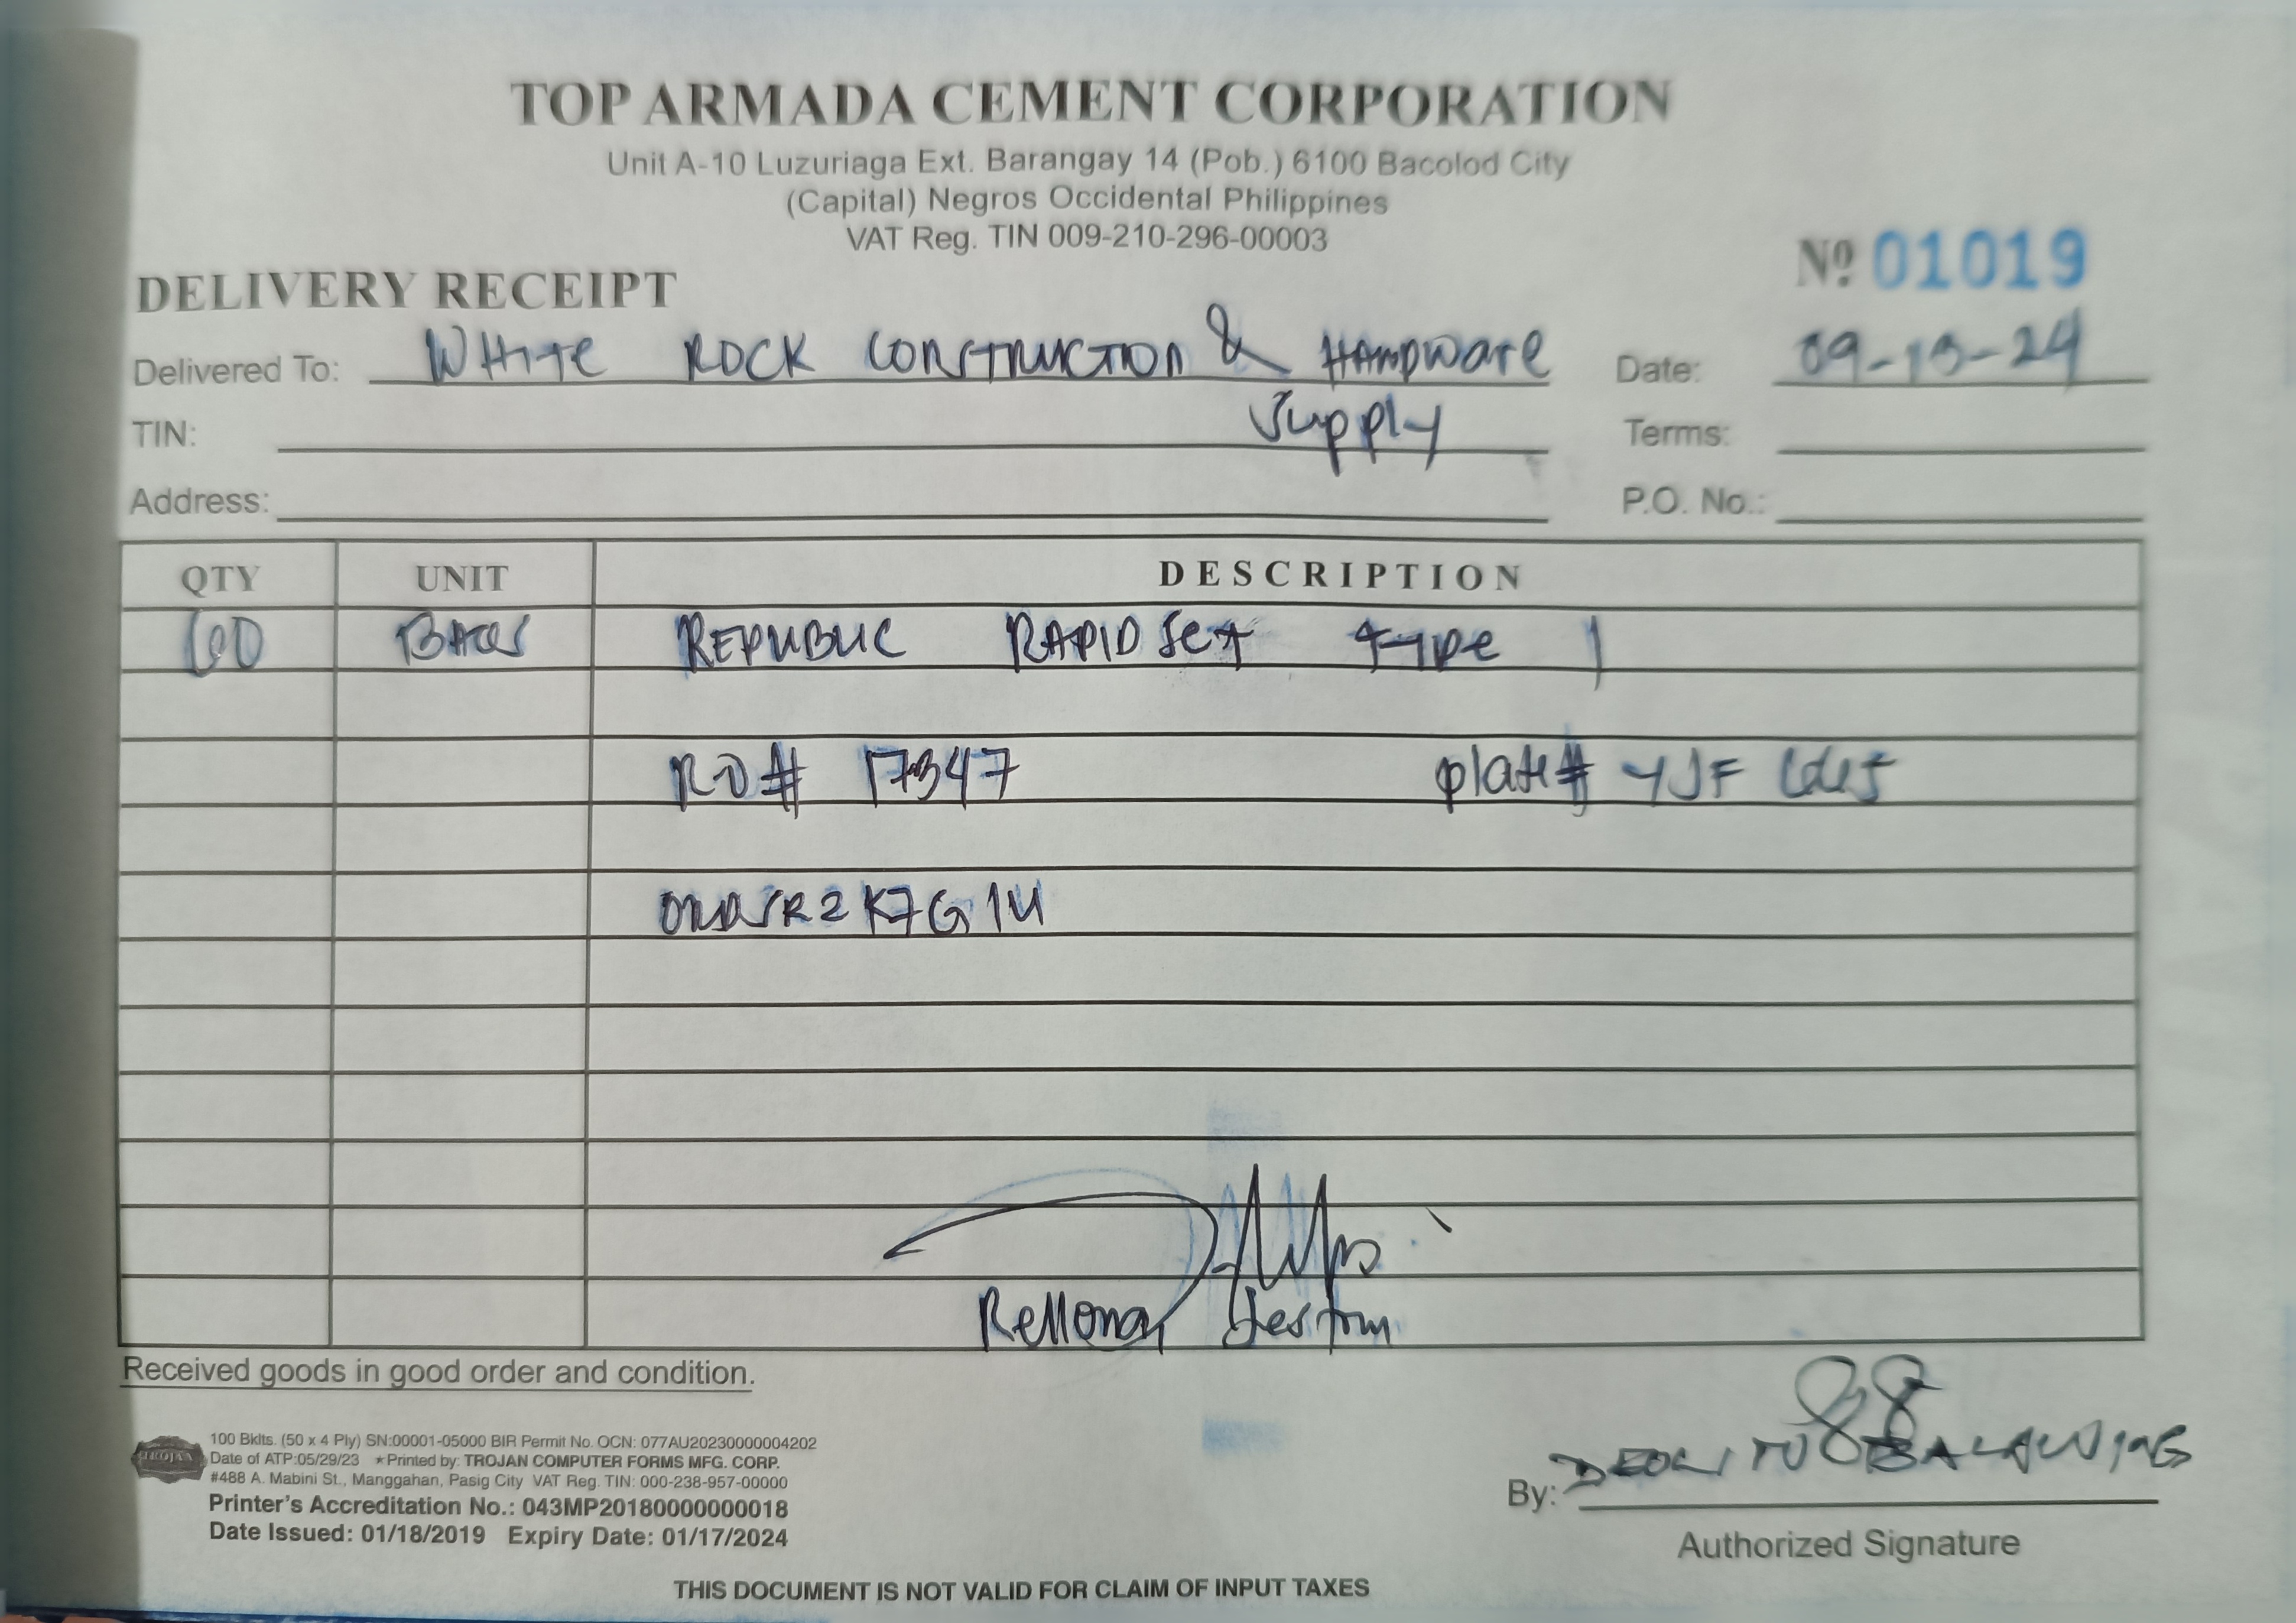 TOP ARMADA CEMENT CORPORATION
Unit A-10 Luzuriaga Ext. Barangay 14 (Pob.) 6100 Bacolod City
(Capital) Negros Occidental Philippines
VAT Reg. TIN 009-210-296-00003
Nº 01019
DELIVERY RECEIPT
Delivered To: White ROCK CONSTRUCTION & HARDWARE Date: 09-13-24
Supply
TIN: Terms:
Address: P.O. No.:
QTY UNIT DESCRIPTION
60 BAGS REPUBLIC RAPID Set type 1
RO# 17347 plate# YJF
Received goods in good order and condition.
TROJAN
100 Bklts. (50 x 4 Ply) SN:00001-05000 BIR Permit No. OCN: 077AU20230000004202
Date of ATP:05/29/23 ★Printed by: TROJAN COMPUTER FORMS MFG. CORP.
#488 A. Mabini St., Manggahan, Pasig City VAT Reg. TIN: 000-238-957-00000
Printer's Accreditation No.: 043MP20180000000018
Date Issued: 01/18/2019 Expiry Date: 01/17/2024
By:
Authorized Signature
THIS DOCUMENT IS NOT VALID FOR CLAIM OF INPUT TAXES